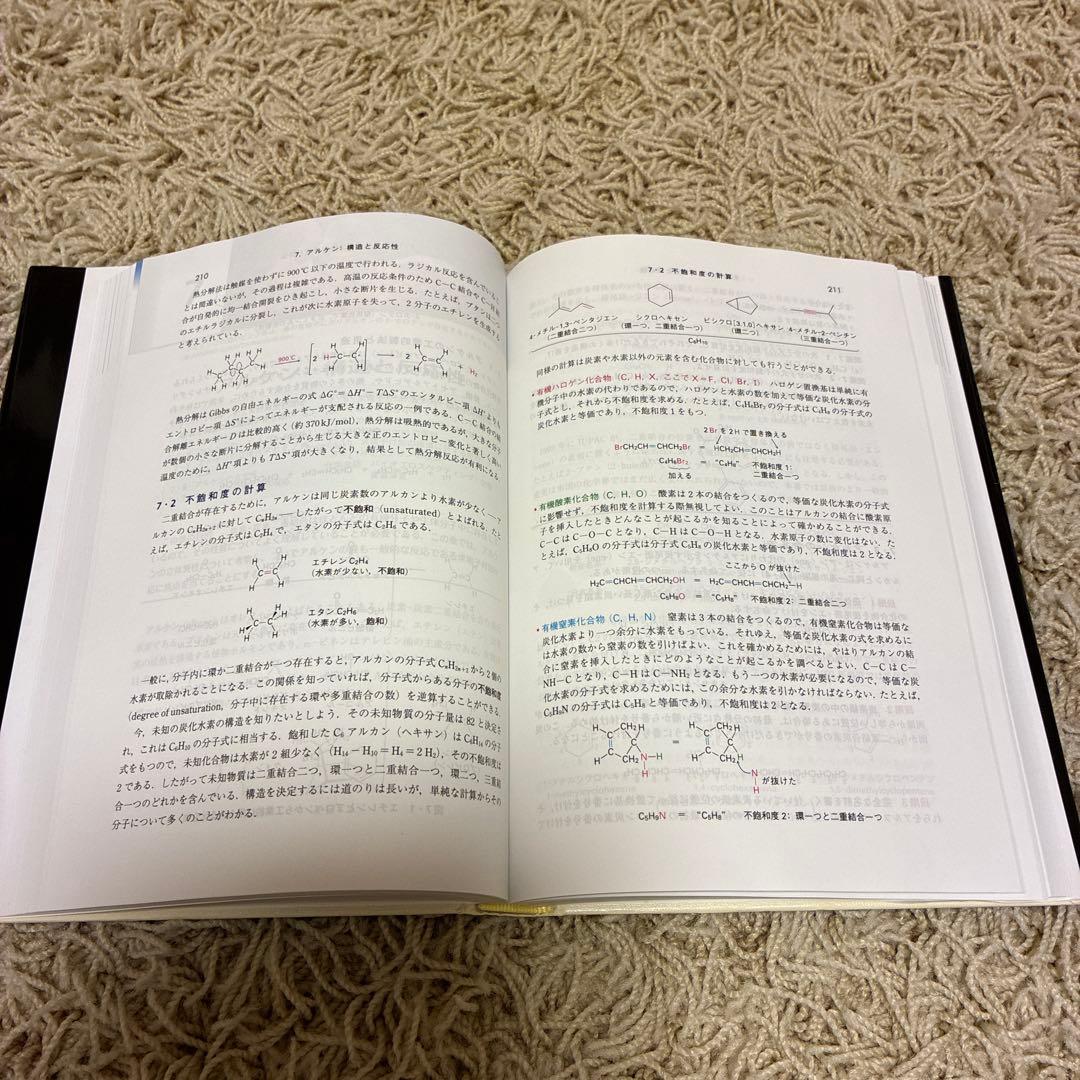 210
7. アルケン: 構造と反応性
熱分解法は触媒を使わずに 900℃ 以下の温度で行われる．ラジカル反応を含んでいるこ
とは間違いないが，その過程は複雑である．高温の反応条件のため C−C 結合や C−H 結
合が自発的に均一結合開裂をひき起こし，小さな断片を生じる．たとえば，ブタンは二つ
のエチルラジカルに分裂し，これが次に水素原子を失って，2 分子のエチレンを生成する
と考えられている．
900℃
熱分解は Gibbs の自由エネルギーの式 ΔG°＝ΔH°−TΔS° のエンタルピー項 ΔH° よりも
エントロピー項 ΔS° によってエネルギーが支配される反応の一例である．C−C 結合の結
合解離エネルギー D は比較的高く（約 370 kJ/mol），熱分解は吸熱的であるが，大きな分子
が数個の小さな断片に分解することから生じる大きな正のエントロピー変化と著しく高い
温度のために，ΔH° 項よりも TΔS° 項が大きくなり，結果として熱分解反応が有利になる
7・2 不飽和度の計算
二重結合が存在するために，アルケンは同じ炭素数のアルカンより水素が少なく——ア
ルカンの CnH2n+2 に対して CnH2n——したがって不飽和（unsaturated）とよばれる．たと
えば，エチレンの分子式は C2H4 で，エタンの分子式は C2H6 である．
エチレン C2H4
（水素が少ない，不飽和）
エタン C2H6
（水素が多い，飽和）
一般に，分子内に環か二重結合が一つ存在すると，アルカンの分子式 CnH2n+2 から 2 個の
水素が取除かれることになる．この関係を知っていれば，分子式からある分子の不飽和度
（degree of unsaturation，分子中に存在する環や多重結合の数）を逆算することができる．
今，未知の炭化水素の構造を知りたいとしよう．その未知物質の分子量は 82 と決定さ
れ，これは C6H10 の分子式に相当する．飽和した C6 アルカン（ヘキサン）は C6H14 の分子
式をもつので，未知化合物は水素が 2 組少なく（H14−H10＝H4＝2 H2），その不飽和度は
2 である．したがって未知物質は二重結合二つ，環一つと二重結合一つ，環二つ，三重結
合一つのどれかを含んでいる．構造を決定するには道のりは長いが，単純な計算からその
分子について多くのことがわかる．
7・2 不飽和度の計算
211
4-メチル-1,3-ペンタジエン シクロヘキセン ビシクロ[3.1.0]ヘキサン 4-メチル-2-ペンチン
（二重結合二つ） （環一つ，二重結合一つ） （環二つ） （三重結合一つ）
C6H10
同様の計算は炭素や水素以外の元素を含む化合物に対しても行うことができる．
・有機ハロゲン化合物（C, H, X, ここで X＝F, Cl, Br, I） ハロゲン置換基は単純に有
機分子中の水素の代わりであるので，ハロゲンと水素の数を加えて等価な炭化水素の分
子式とし，それから不飽和度を求める．たとえば，C4H6Br2 の分子式は C4H8 の分子式の
炭化水素と等価であり，不飽和度 1 をもつ．
2 Br を 2 H で置き換える
BrCH2CH＝CHCH2Br ＝ HCH2CH＝CHCH2H
C4H6Br2 ＝ “C4H8” 不飽和度 1:
加える 二重結合一つ
・有機酸素化合物（C, H, O） 酸素は 2 本の結合をつくるので，等価な炭化水素の分子式
に影響せず，不飽和度を計算する際無視してよい．このことはアルカンの結合に酸素原
子を挿入したときどんなことが起こるかを知ることによって確かめることができる．
C−C は C−O−C となり，C−H は C−O−H となる．水素原子の数に変化はない．た
とえば，C5H8O の分子式は分子式 C5H8 の炭化水素と等価であり，不飽和度は 2 となる．
ここから O が抜けた
H2C＝CHCH＝CHCH2OH ＝ H2C＝CHCH＝CHCH2−H
C5H8O ＝ “C5H8” 不飽和度 2: 二重結合二つ
・有機窒素化合物（C, H, N） 窒素は 3 本の結合をつくるので，有機窒素化合物は等価な
炭化水素より一つ余分に水素をもっている．それゆえ，等価な炭化水素の式を求めるに
は水素の数から窒素の数を引けばよい．これを確かめるためには，やはりアルカンの結
合に窒素を挿入したときにどのようなことが起こるかを調べるとよい．C−C は C−
NH−C となり，C−H は C−NH2 となる．もう一つの水素が必要になるので，等価な炭
化水素の分子式を求めるためには，この余分な水素を引かなければならない．たとえば，
C5H9N の分子式は C5H8 と等価であり，不飽和度は 2 となる．
が抜けた．
C5H9N ＝ “C5H8” 不飽和度 2: 環一つと二重結合一つ